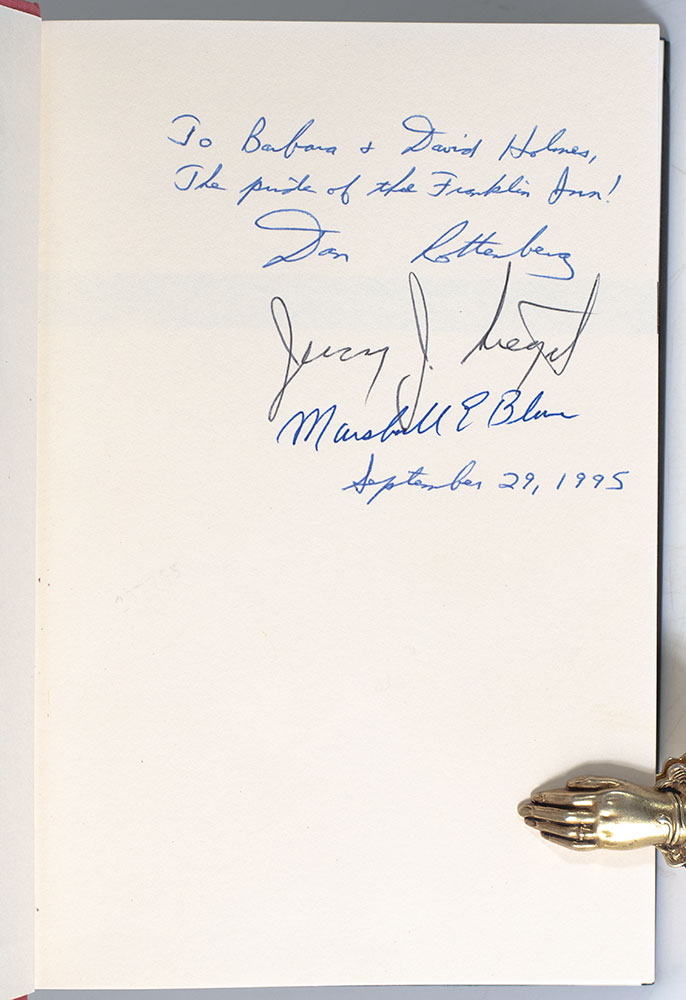 To Barbara & David Holmes,
The pride of the Franklin Inn!
Dan Rottenberg
Jeremy J. Siegel
Marshall E Blume
September 29, 1995